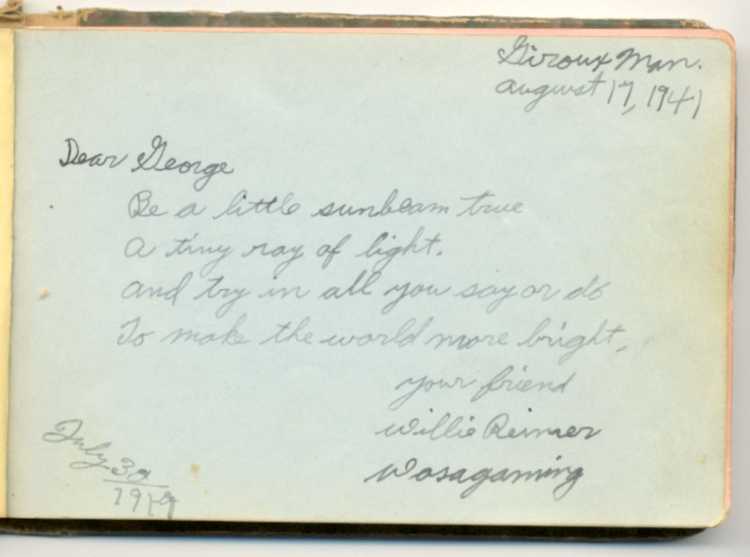 Giroux Man.
August 17, 1941
Dear George
Be a little sunbeam true
A tiny ray of light.
And try in all you say or do
To make the world more bright.
your friend
Willie Reimer
Wasagaming
July
19